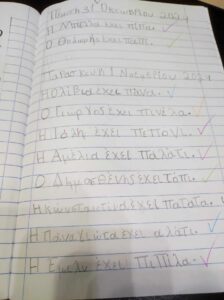 Πέμπτη 31 Οκτωβρίου 2024
Η Μπέλλα και πίπα.
Ο Θοδωρής και παπί.
Παρασκευή 1 Νοεμβρίου 2024
Η Ολίβια έχει πάνα.
Ο Γιώργος έχει πινέλα.
Η Πόλη έχει πεπόνι.
Η Αμέλια έχει παλάτι.
Ο Δημοσθένης έχει τόπι.
Η Κωνσταντίνα έχει πατάτα.
Η Παναγιώτα έχει αλάτι.
Η έχει πιπίλα.